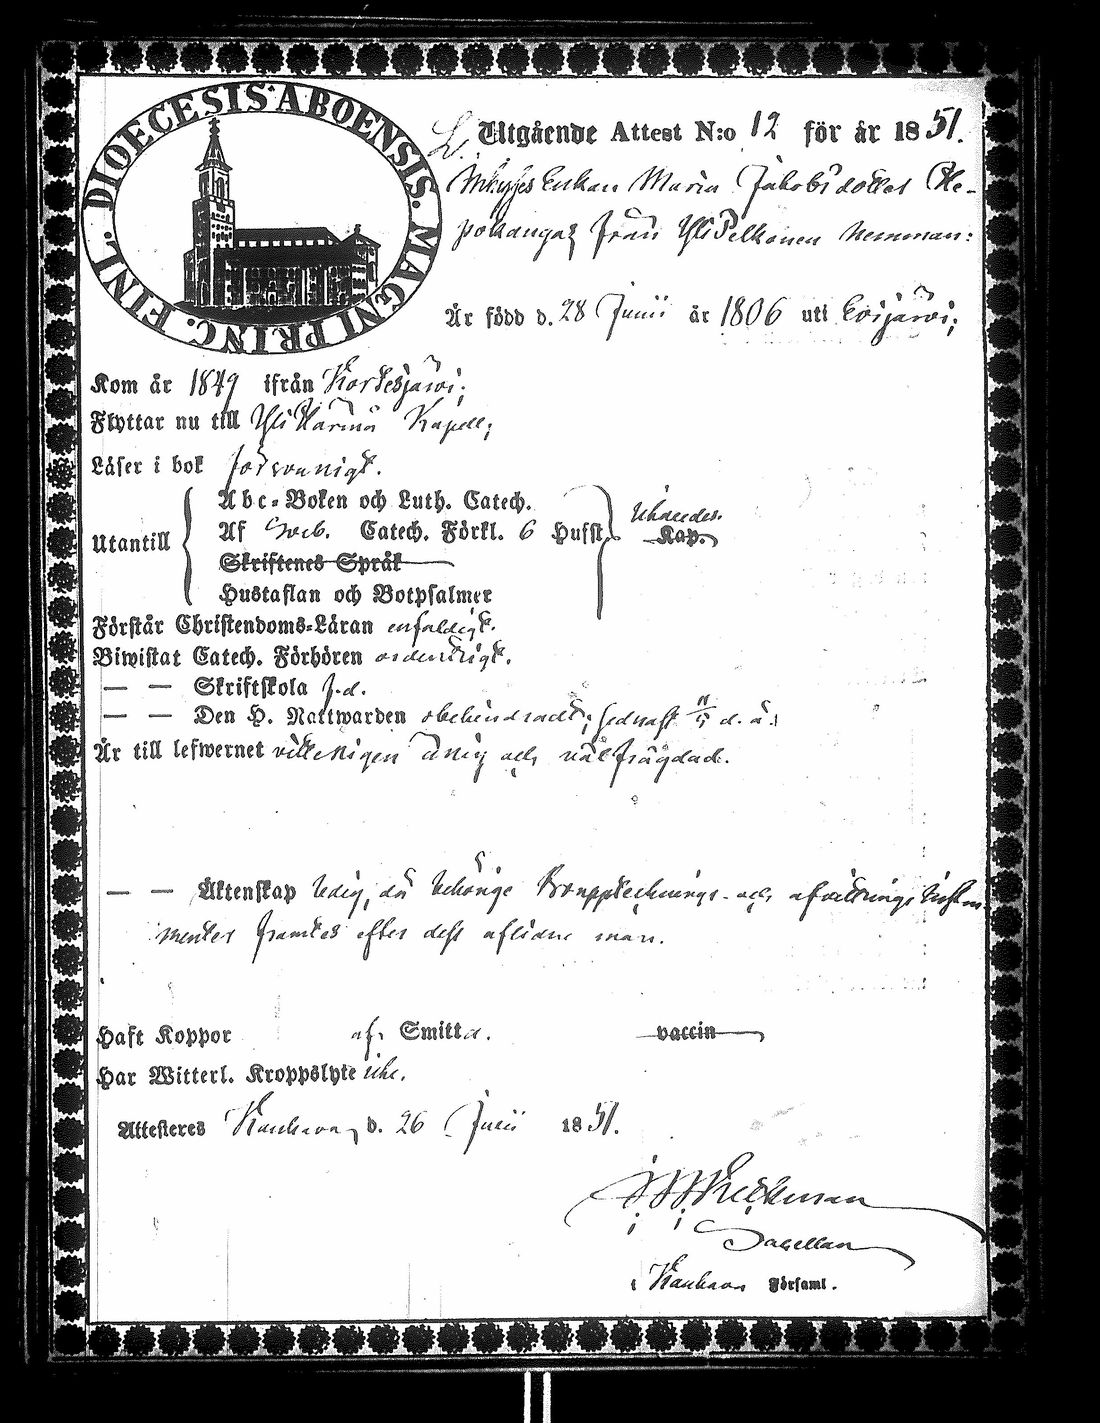 DIOECESIS ABOENSIS. MAGNI PRINC. FINL.
Utgående Attest N:o 12 för år 1851.
Enkan Maria Jakobsdotter He-
pokangas från YliPelkonen hemman:
Är född d. 28 Junii år 1806 uti Evijärvi;
Kom år 1849 ifrån Kortesjärvi;
Flyttar nu till YliHärmä Kapell;
Läser i bok försvarligt.
Utantill
Abc-Boken och Luth. Catech.
Af Sveb. Catech. Förkl. 6 Hufst. Kap.
Skriftenes Språk
Hustaflan och Botpsalmer
Förstår Christendoms-Läran enfaldigt.
Biwistat Catech. Förhören ordentligt.
— — Skriftskola f.d.
— — Den H. Nattwarden obehindradt; sednast 11/5 d. å.
Är till lefwernet veterligen ärlig och välfrägdad.
— — Äktenskap ledig, då behörige Bouppteknings- och afvittrings Instru-
menter framtes efter dess aflidne man.
Haft Koppor af Smitta. vaccin
Har Witterl. Kroppslyte icke.
Attesteres Kauhava, d. 26 Junii 1851.
Sacellan
i Kauhava Församl.